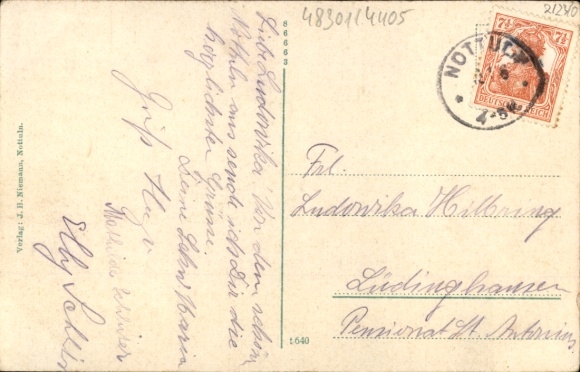 4830114405
2127/0
7½ 7½
DEUTSCHES REICH
NOTTULN
4-5N.
Liebe Ludowika! Von dem schönen
Nottuln aus sende ich Dir die
herzlichsten Grüße
Deine Maria
Gruß Hugo
Elly
86663
Verlag: J. H. Niemann, Nottuln.
1640
Frl.
Ludowika Hilbring
Lüdinghausen
Pensionat St. Antonius